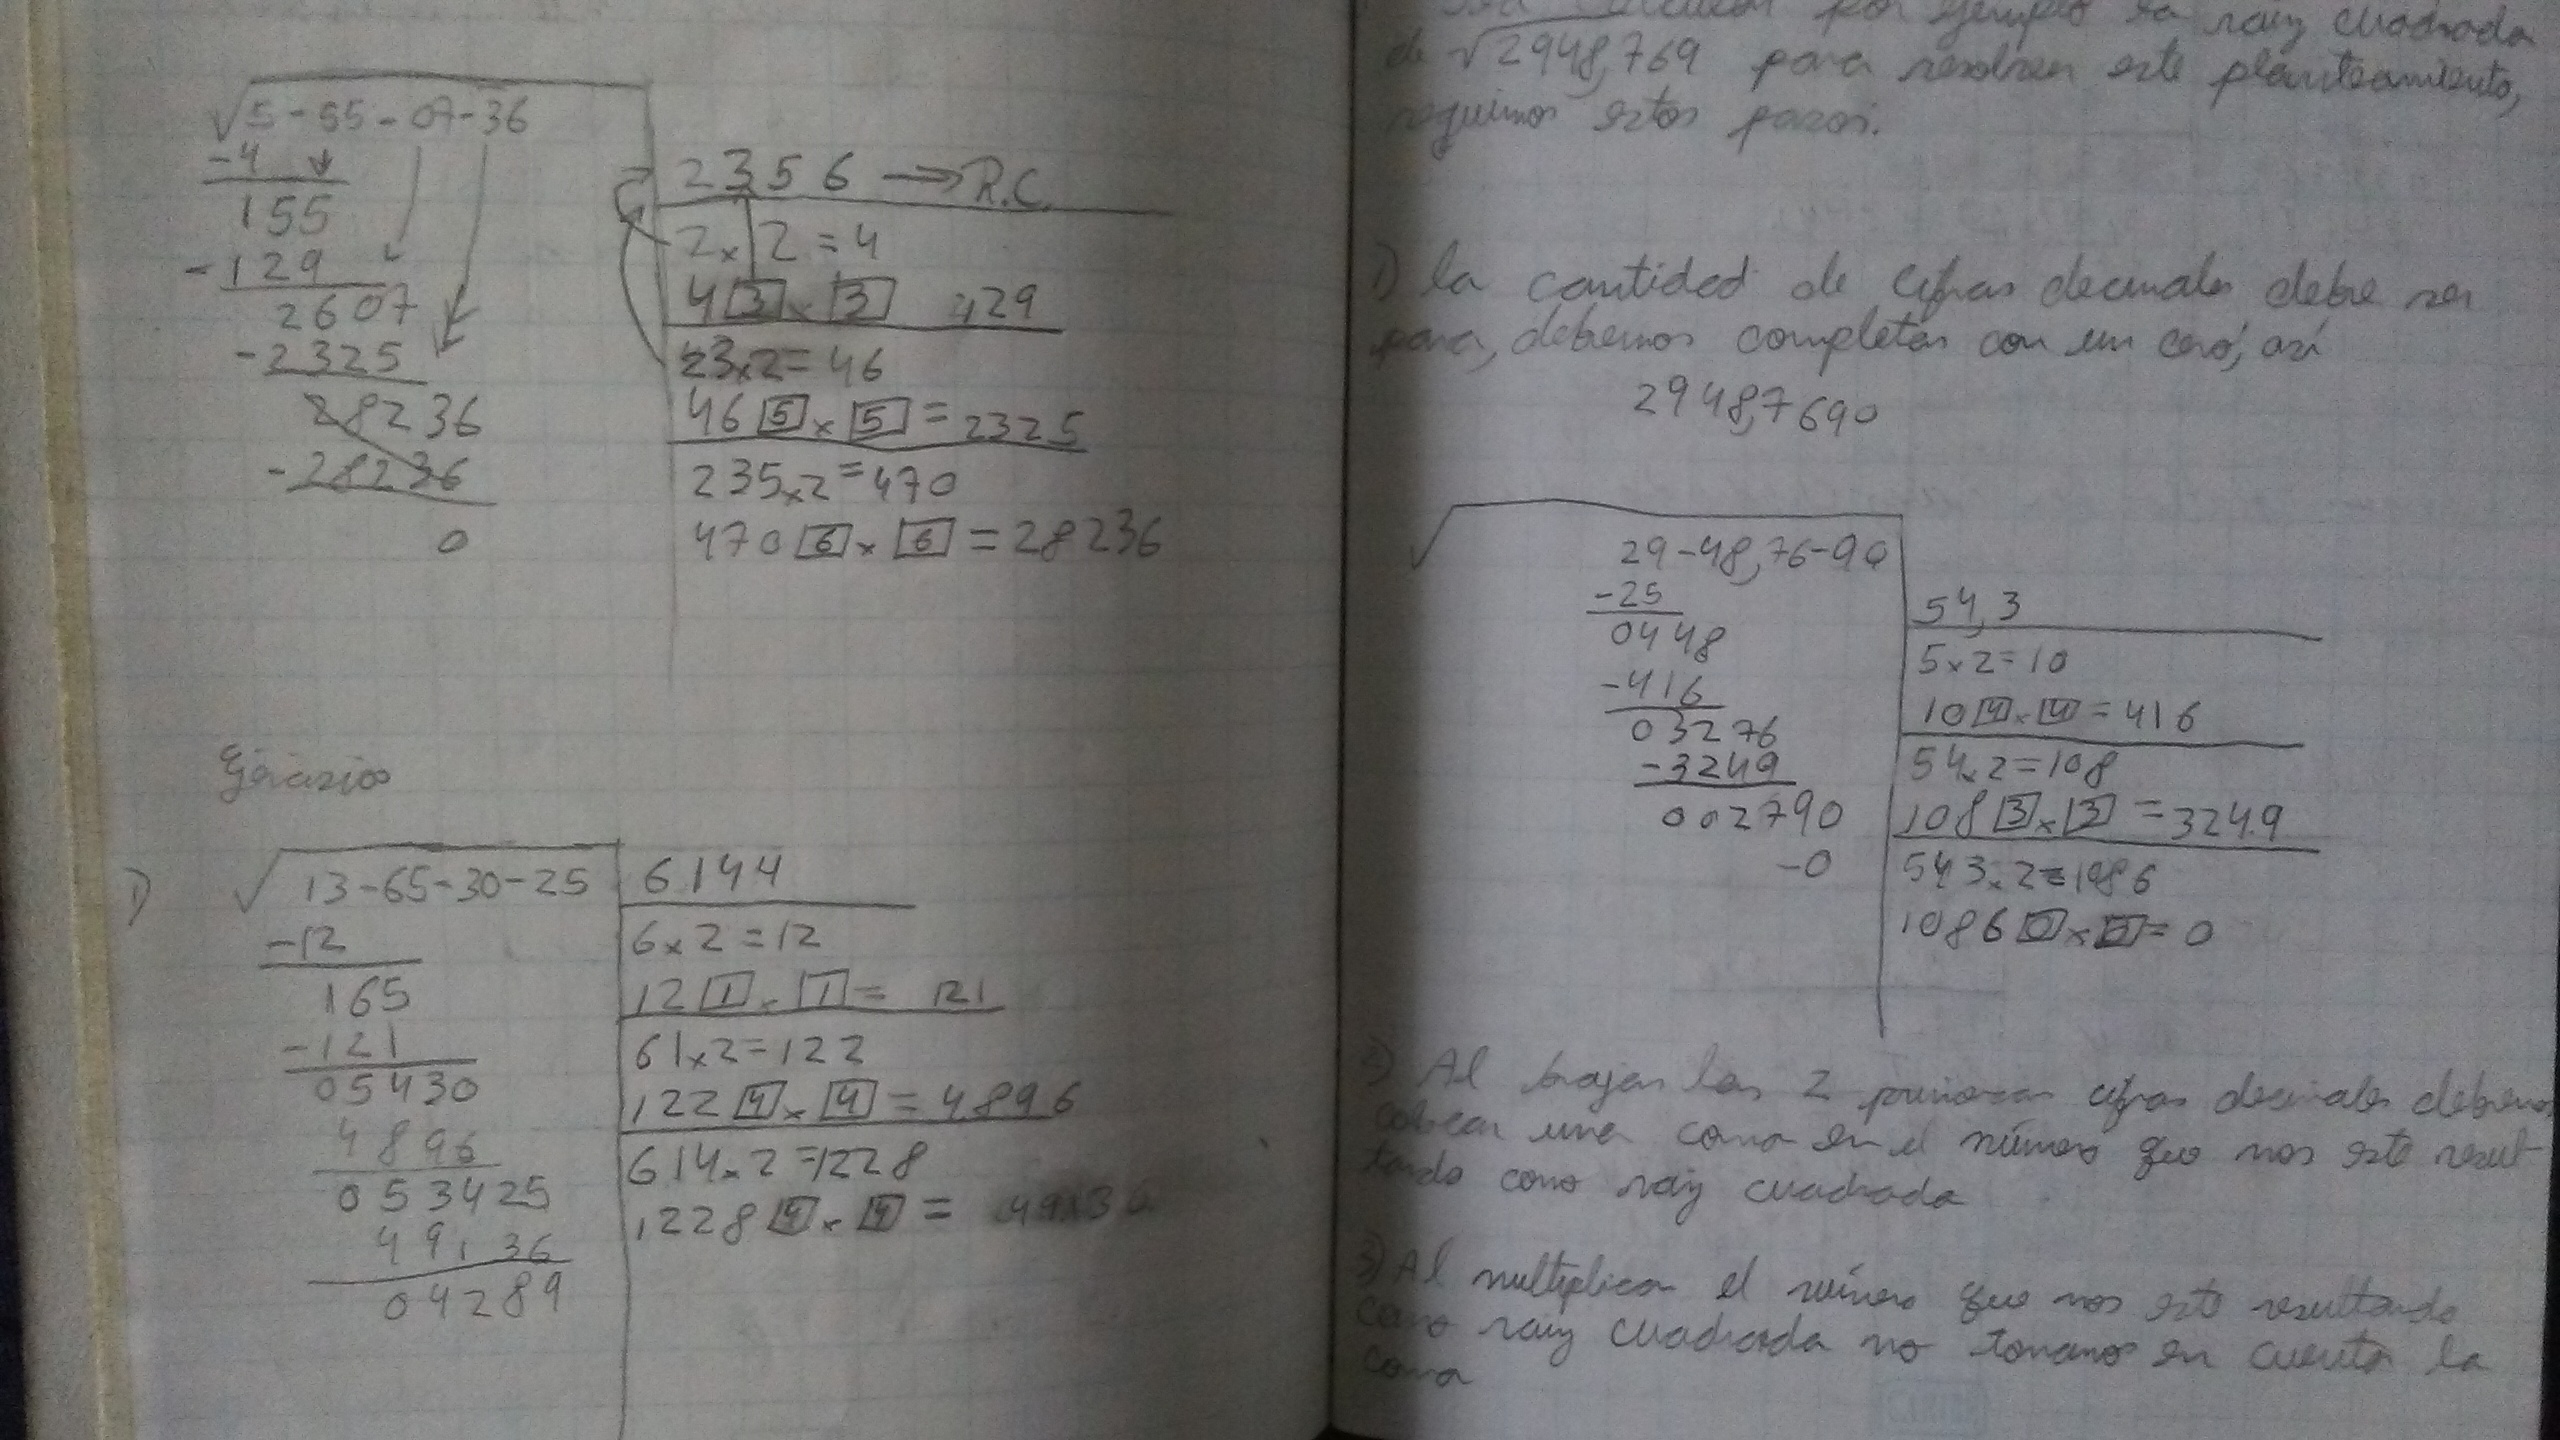 √5-55-07-36
-4
155
-129
2607
-2325
28236
-28236
0
2356 → R.C.
2x2=4
4[3]x[3] 129
23x2=46
46[5]x[5]=2325
235x2=470
470[6]x[6]=28236
Ejercicios
1) √13-65-30-25
-12
165
-121
05430
4896
053425
49136
04289
6144
6x2=12
12[1]x[1]= 121
61x2=122
122[4]x[4]=4896
614x2=1228
1228[4]x[4]= 49136
por ejemplo la raiz cuadrada
de √2948,769 para resolver este planteamiento,
seguimos estos pasos.
1) la cantidad de cifras decimales debe ser
para, debemos completar con un cero, así
2948,7690
√29-48,76-90
-25
0448
-416
03276
-3249
002790
-0
54,3
5x2=10
10[4]x[4]=416
54x2=108
108[3]x[3]=3249
543x2=1086
1086[0]x[0]=0
2) Al bajar las 2 primeras cifras decimales debemos
colocar una coma en el número que nos este resul-
tando como raiz cuadrada
3) Al multiplicar el número que nos este resultando
como raiz cuadrada no tomamos en cuenta la
coma